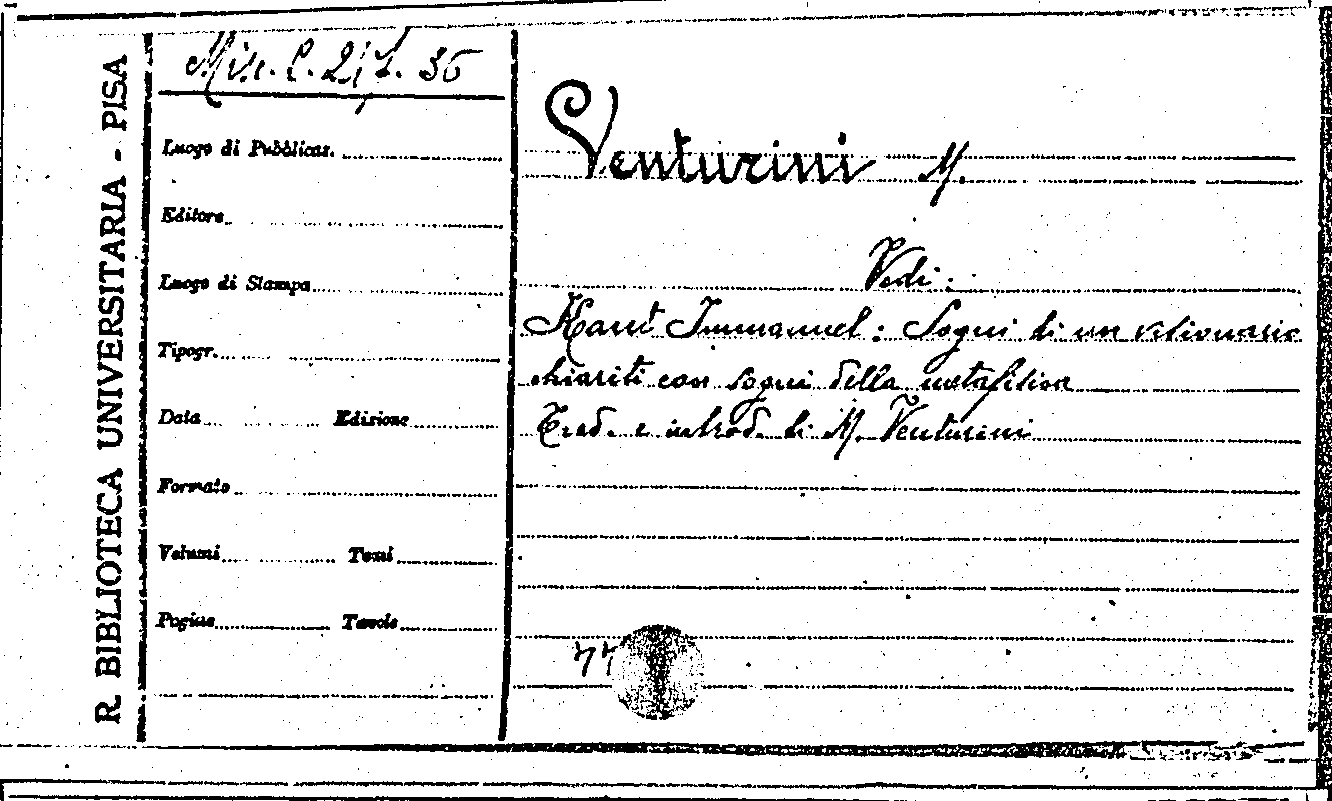 R. BIBLIOTECA UNIVERSITARIA - PISA
Misc. C. 21, 1. 36
Luogo di Pubblicaz.
Editore
Luogo di Stampa
Tipogr.
Data Edizione
Formato
Volumi Tomi
Pagine Tavole
Venturini M.
Vedi:
Kant Immanuel: Sogni di un visionario
chiariti con sogni della metafisica
Trad. e introd. di M. Venturini
77